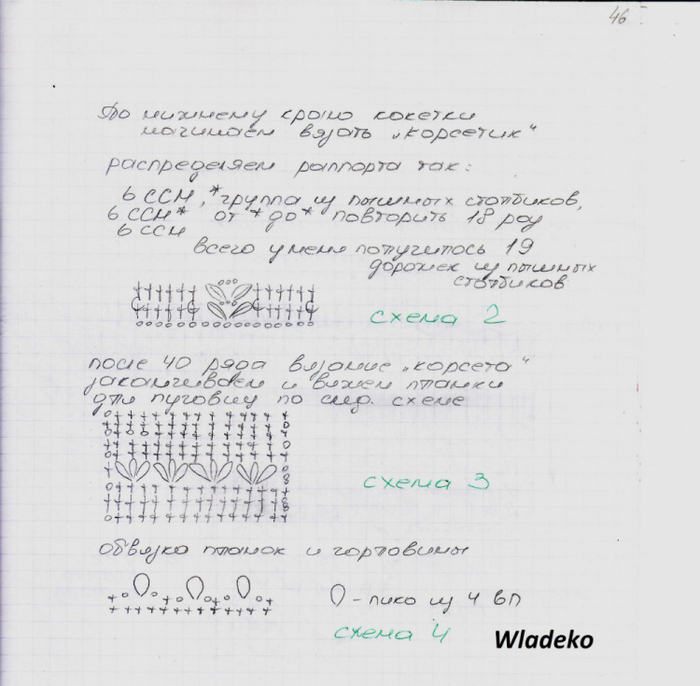 46
По нижнему краю кокетки
начинаем вязать „корсетик“
распределяем раппорта так:
6 ССН, *группа из пышных столбиков,
6 ССН* от *до* повторить 18 раз
6 ССН
всего у меня получилось 19
дорожек из пышных
столбиков
схема 2
после 40 ряда вязание „корсета“
заканчиваем и вяжем планки
для пуговиц по след. схеме
схема 3
обвязка планок и горловины
- пико из 4 вп
схема 4
Wladeko